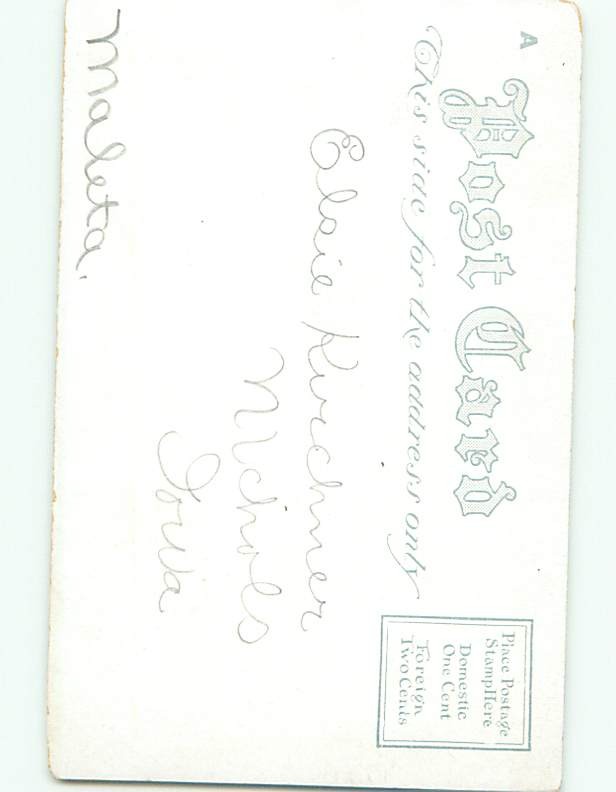 A
Post Card
This side for the address only
Place Postage
Stamp Here
Domestic
One Cent
Foreign
Two Cents
Elsie Kirchner
Nichols
Iowa
Maleta.